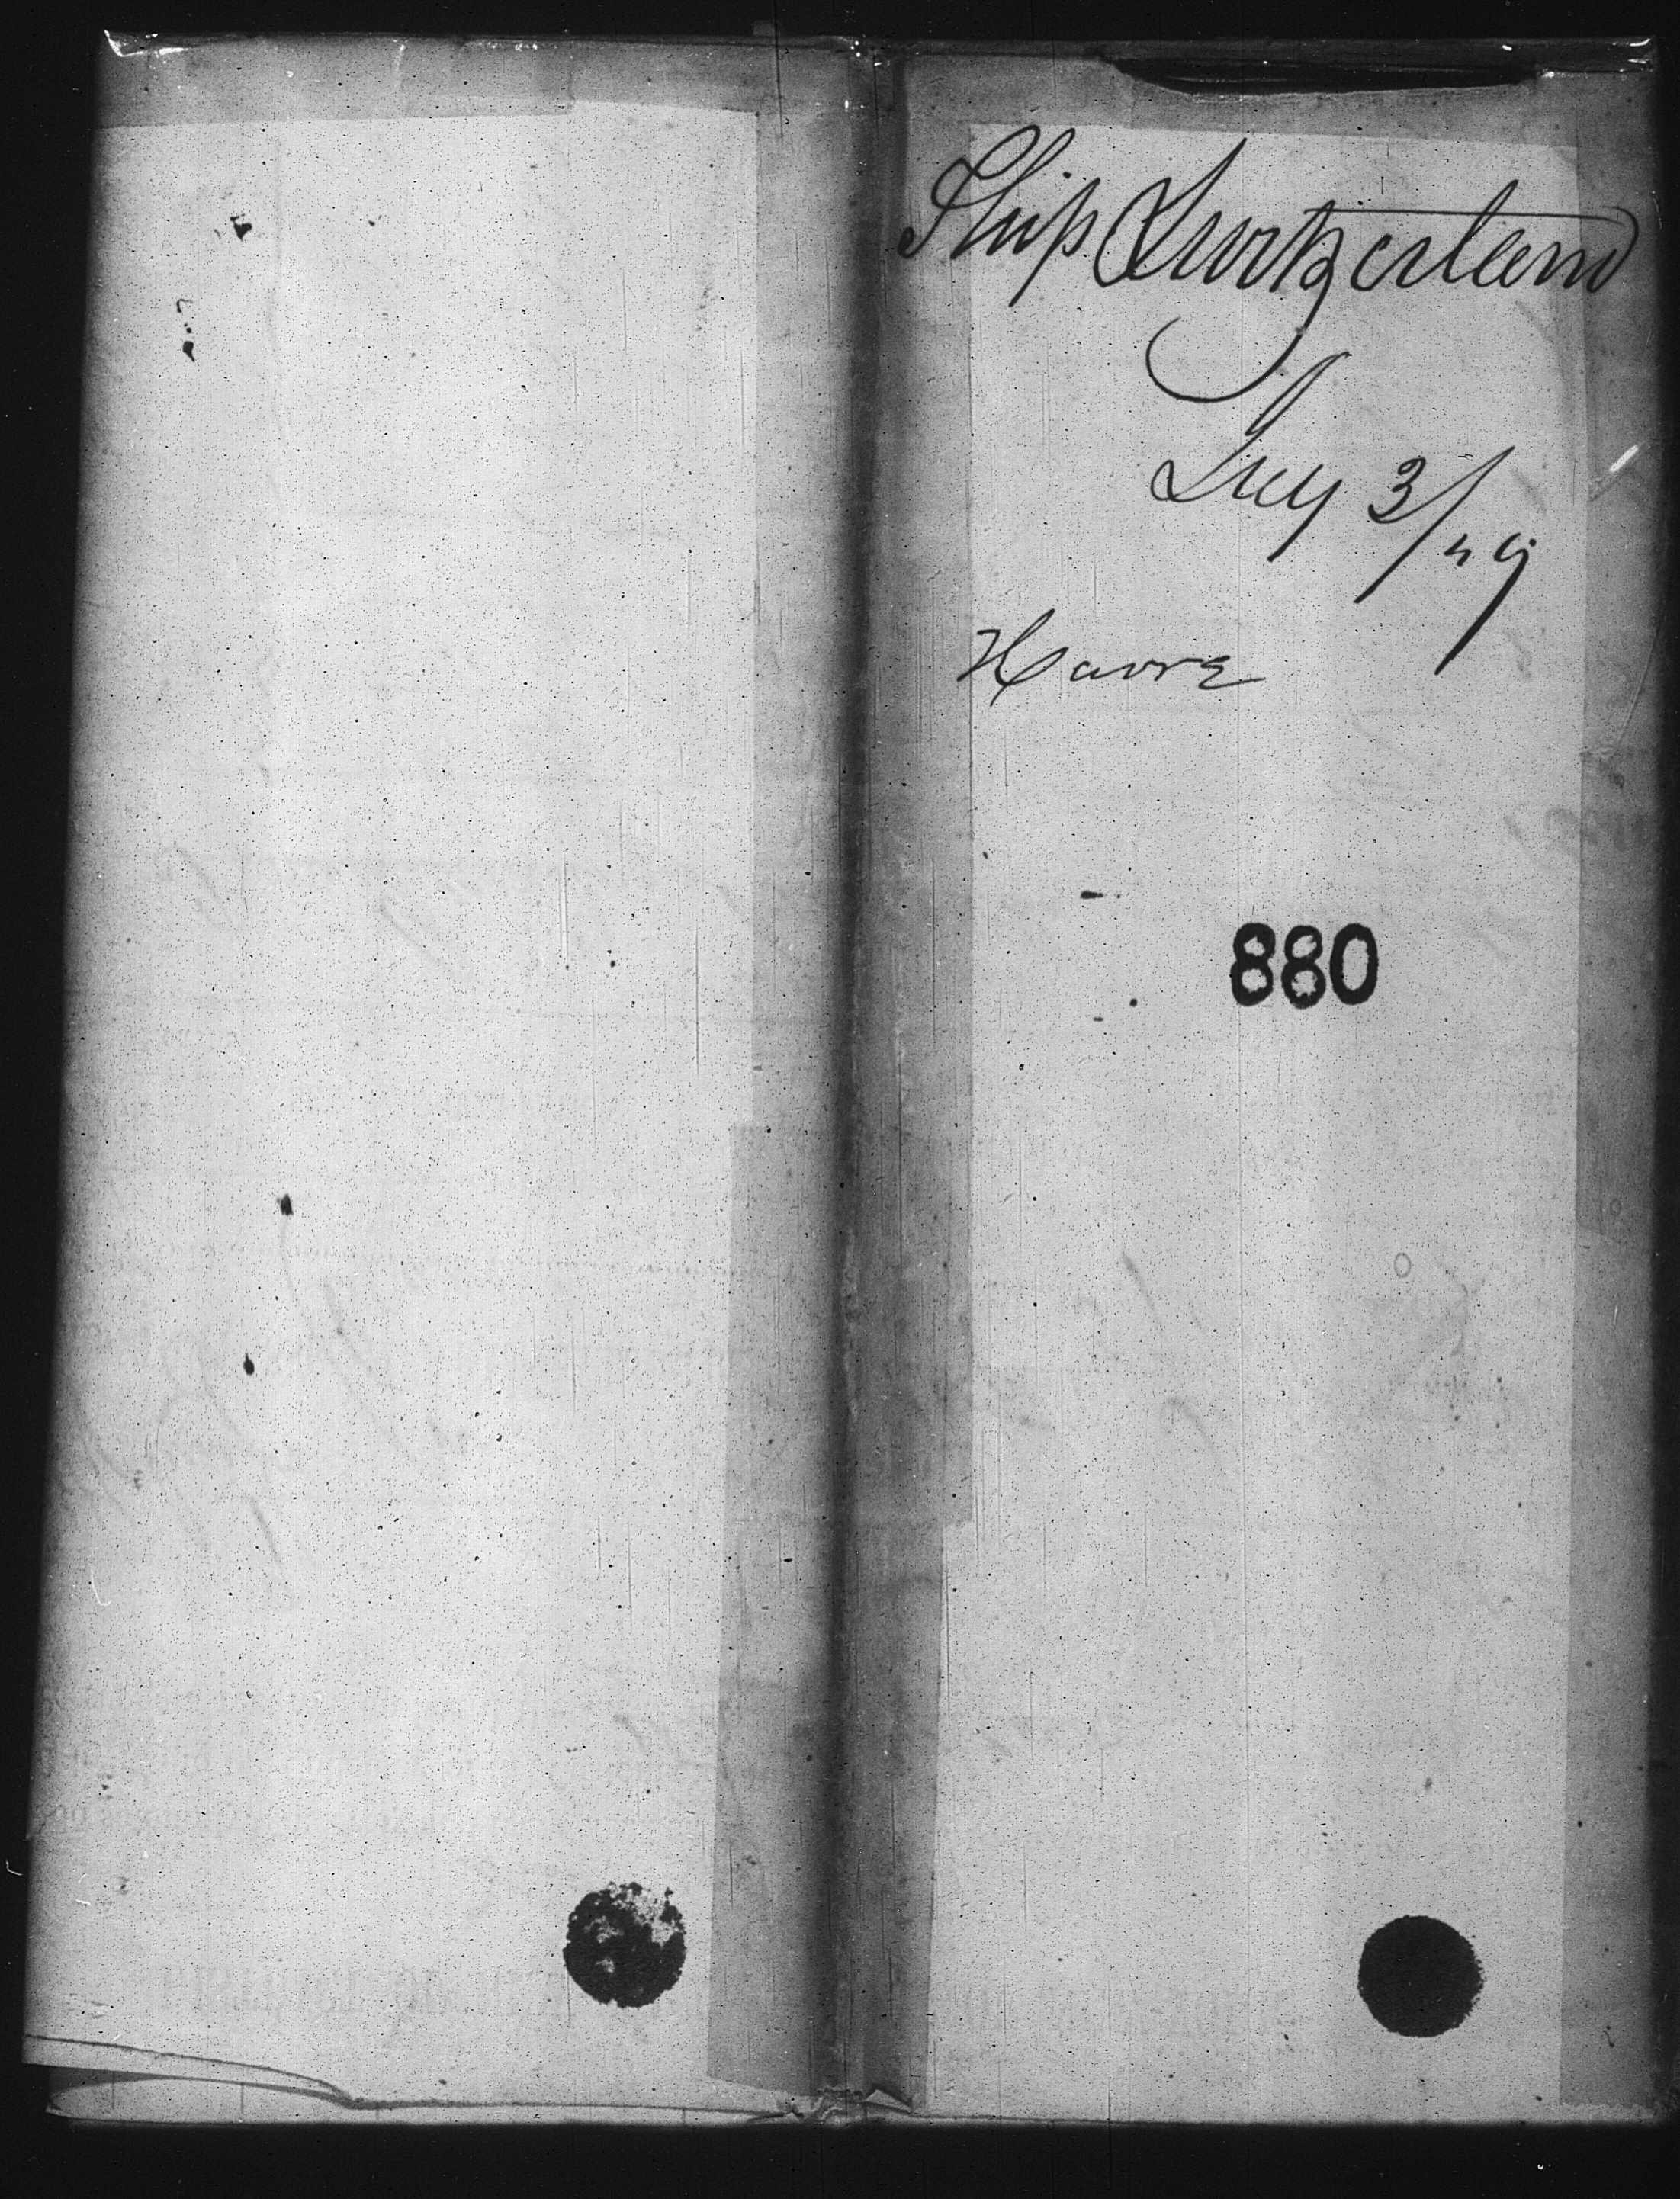 Ship Switzerland
July 3/49
Havre
880